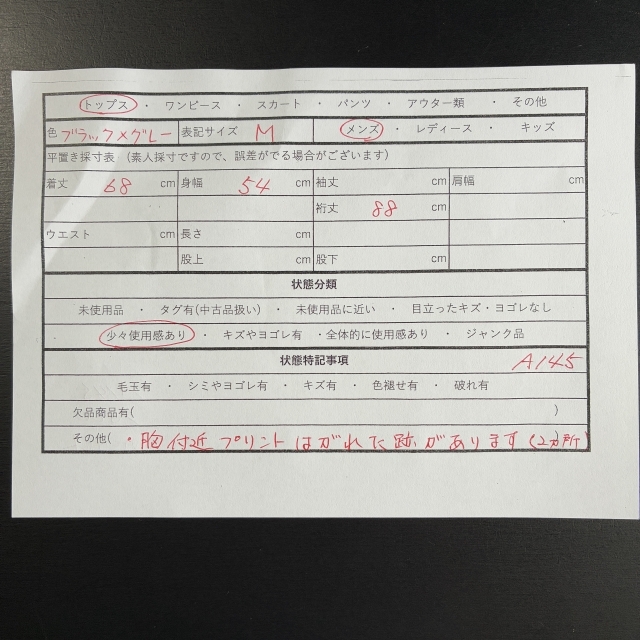 トップス ・ ワンピース ・ スカート ・ パンツ ・ アウター類 ・ その他
色 ブラック×グレー 表記サイズ M メンズ ・ レディース ・ キッズ
平置き採寸表 (素人採寸ですので、誤差がでる場合がございます)
着丈 68 cm 身幅 54 cm 袖丈 cm 肩幅 cm
裄丈 88 cm
ウエスト cm 長さ cm cm
股上 cm 股下 cm
状態分類
未使用品 ・ タグ有(中古品扱い) ・ 未使用品に近い ・ 目立ったキズ・ヨゴレなし
少々使用感あり ・ キズやヨゴレ有 ・全体的に使用感あり ・ ジャンク品
状態特記事項 A145
毛玉有 ・ シミやヨゴレ有 ・ キズ有 ・ 色褪せ有 ・ 破れ有
欠品商品有( )
その他( ・胸付近プリントはがれた跡があります(2ヵ所)